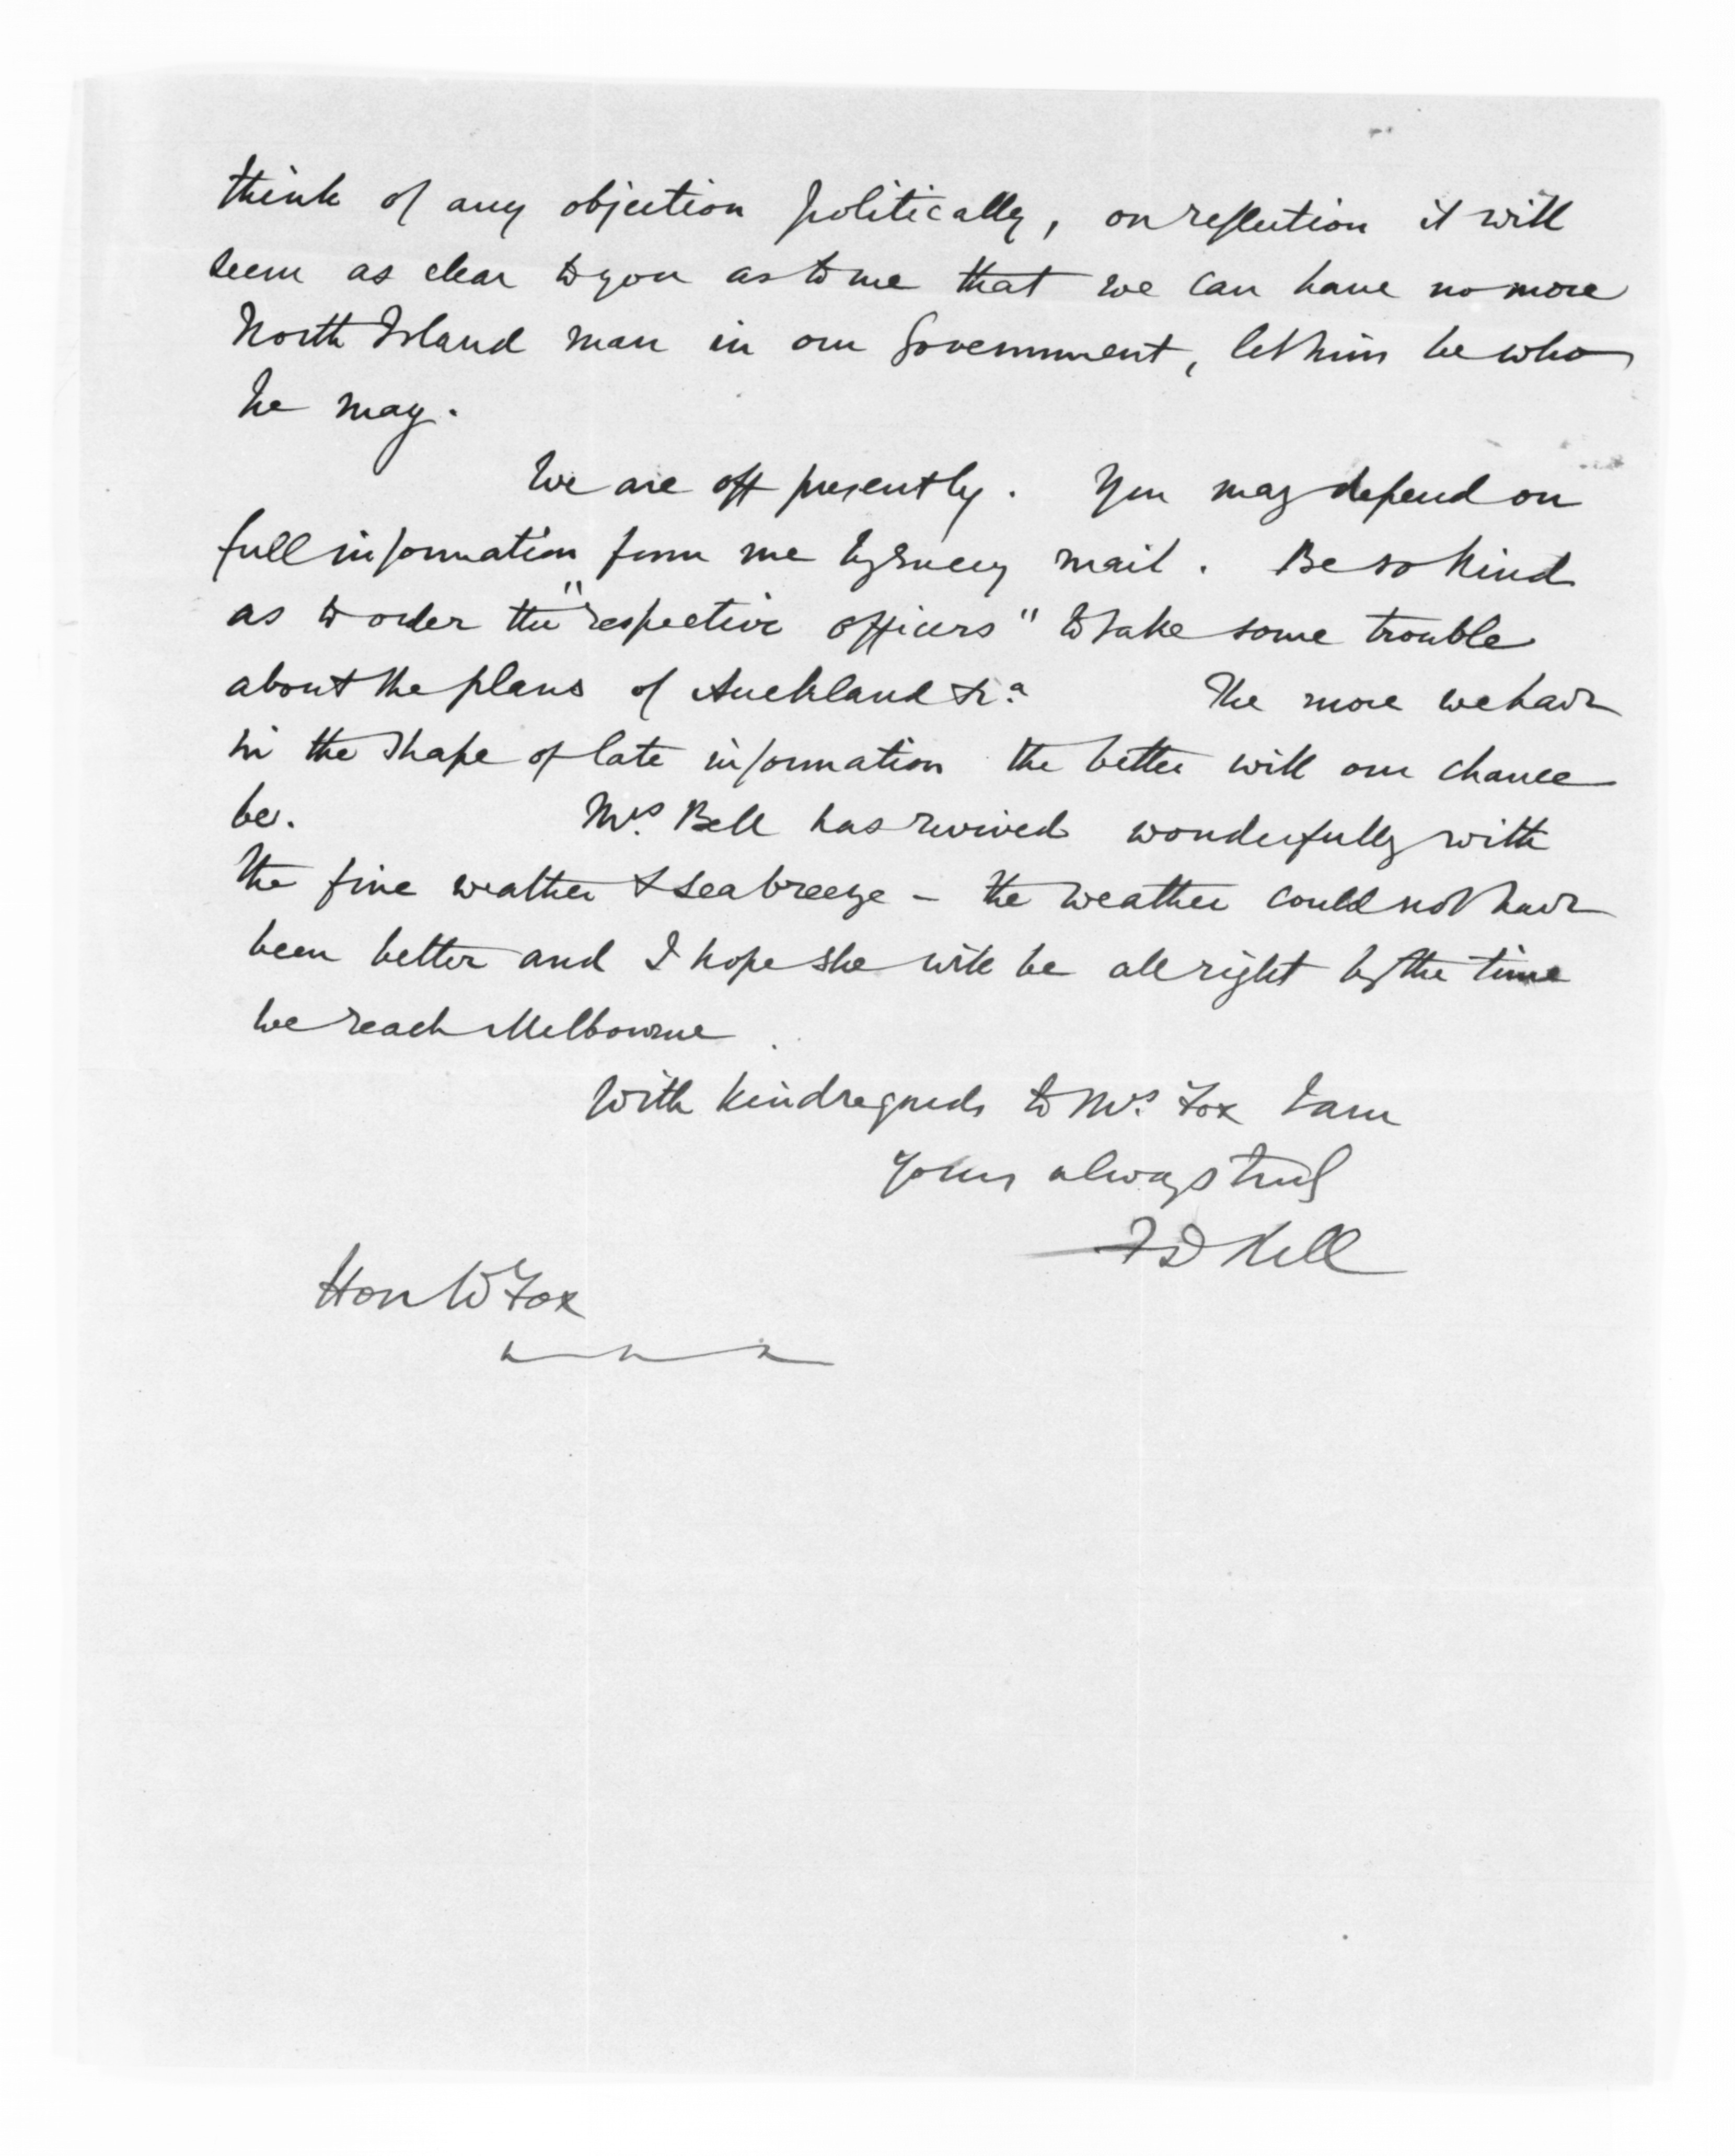 think of any objection politically, on reflection it will
seem as clear to you as to me that we can have no more
North Island man in our Government, let him be who
he may.
We are off presently. You may depend on
full information from me by every mail. Be so kind
as to order the "respective officers" to take some trouble
about the plans of Auckland &c.a The more we have
in the shape of late information the better will our chance
be. Mrs. Bell has revived wonderfully with
the fine weather & sea breeze – the weather could not have
been better and I hope she will be all right by the time
we reach Melbourne.
With kind regards to Mrs. Fox I am
Yours always truly
FD Bell
Hon W Fox